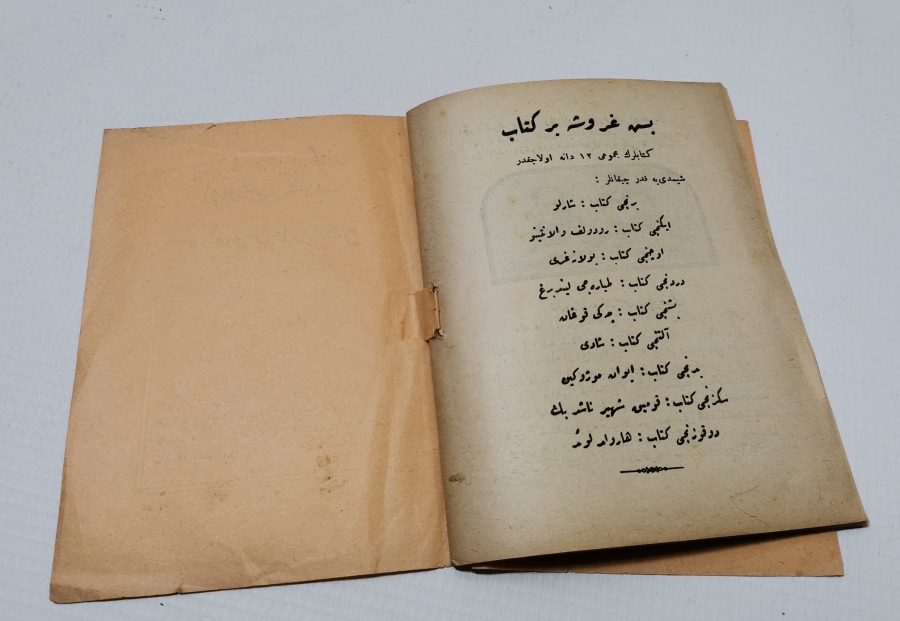 بش غروشه بر كتاب
كتابلرك مجموعی ١٢ دانه اولاجقدر
شیمدی‌یه قدر چیقانلر :
برنجی كتاب : شارلو
ایكنجی كتاب : رودولف والانتینو
اوچنجی كتاب : پولانه‌غری
دردنجی كتاب : طیاره‌جی لیندبرغ
بشنجی كتاب : جه‌كی قوغان
آلتنجی كتاب : شاری
یدنجی كتاب : ایوان موژوكین
سكزنجی كتاب : قومیق شهیر ناشد بك
دوقوزنجی كتاب : هارولد لوید